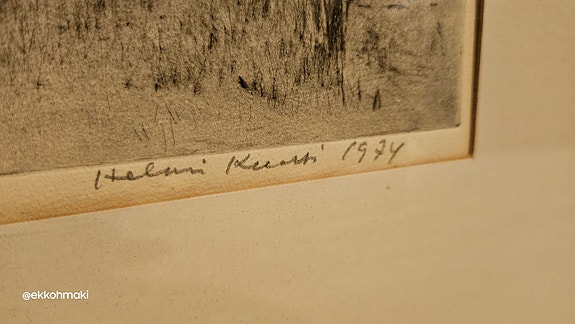 Helmi Kuusi 1974
@ekkohmaki